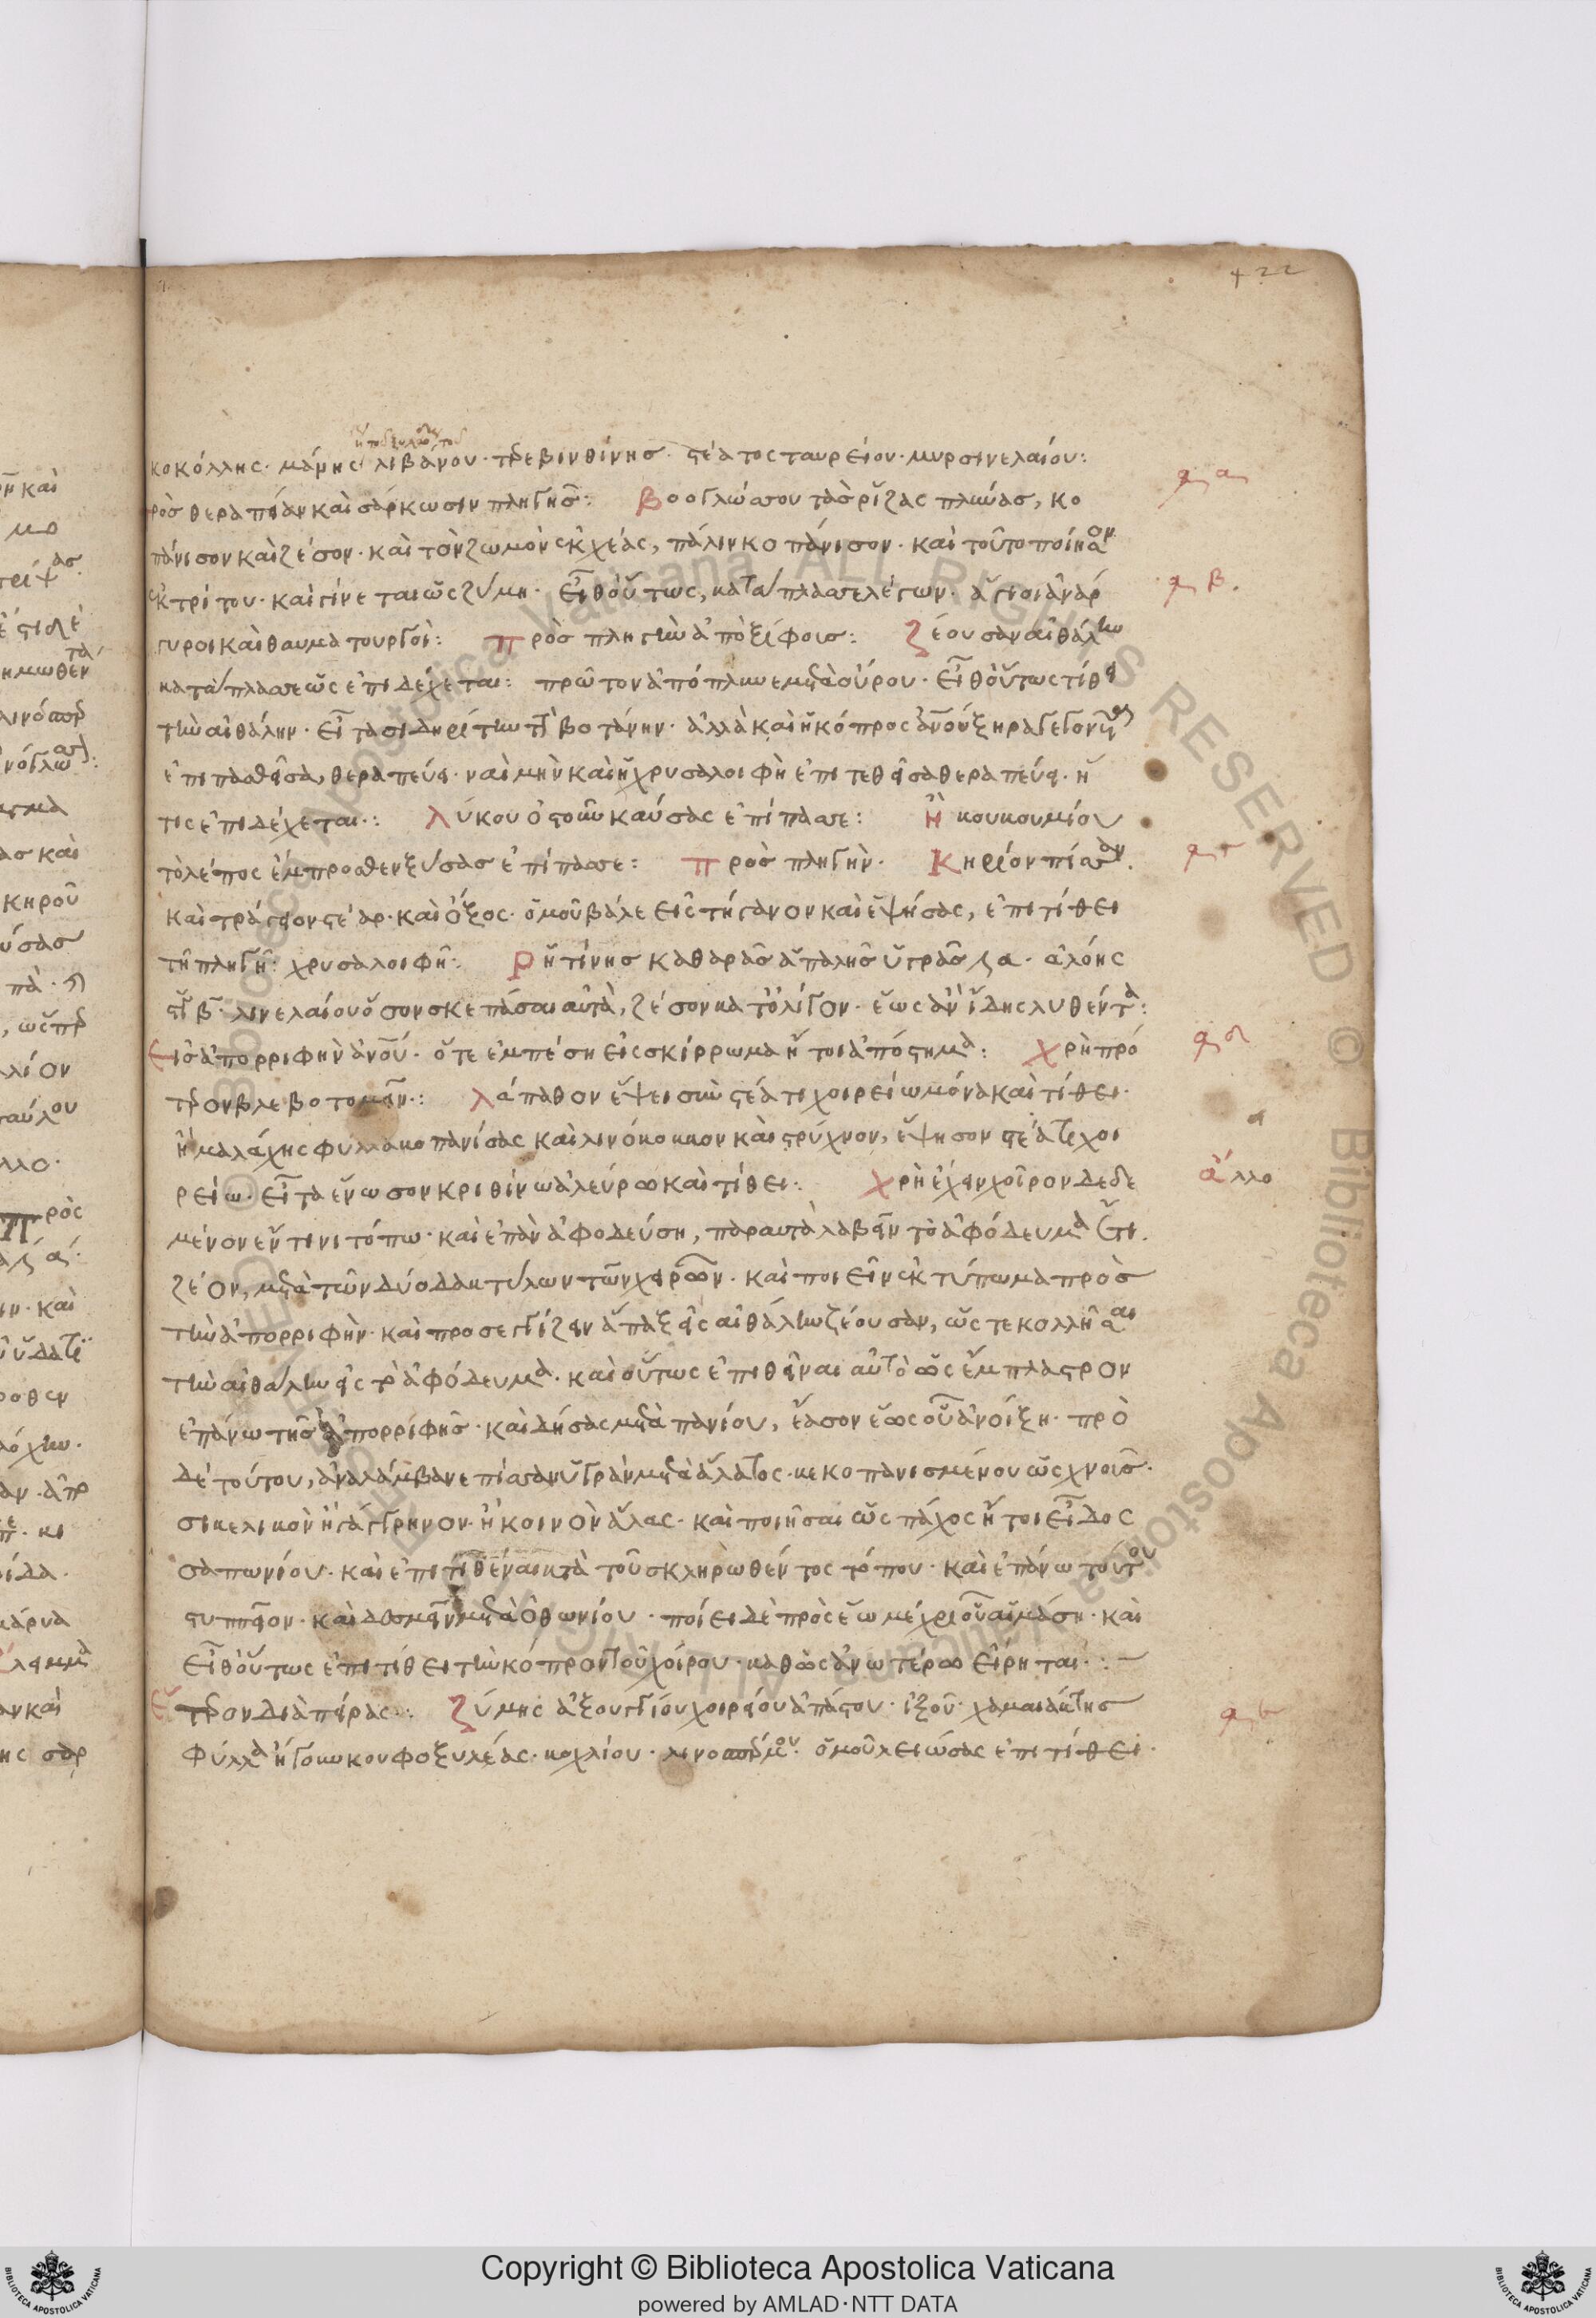 422
κοκόλλης· μάννης λιβάνου· τρεβινθίνης· στέατος ταυρείου· μυρσινελαίου:
ρὸς θεραπείαν καὶ σάρκωσιν πληγῆς: βοογλώσσου τὰς ῥίζας πλύνας, κο
πάνισον καὶ ζέσον· καὶ τὸν ζωμὸν ἐκχέας, πάλιν κοπάνισον· καὶ τοῦτο ποίησον
ἐκ τρίτου· καὶ γίνεται ὡς ζύμη· εἶθ' οὕτως, κατάπλασσε λέγων· ἅγιοι ἀνάρ
γυροι καὶ θαυματουργοί: πρὸς πληγὴν ἀπὸ ξίφους: ζέουσαν αἰθάλην
κατάπλασσε ὡς ἐπιδέχεται: πρῶτον ἀπόπλυνε μετὰ οὔρου· εἶθ' οὕτως τίθει
τὴν αἰθάλην· εἶτα σιδηρίτην τὴν βοτάνην· ἀλλὰ καὶ ἡ κόπρος ἀνου ξηρὰ γεγονυῖα
ἐπιπασθεῖσα, θεραπεύει· ναὶ μὴν καὶ ἡ χρυσαλοιφὴ ἐπιτεθεῖσα θεραπεύει· ἥ
τις ἐπιδέχεται: λύκου ὀστοῦν καύσας ἐπίπασσε: ἢ κουκουμίου
τὸ λέπος ἔμπροσθεν ξύσας ἐπίπασσε: πρὸς πληγήν· κηρίον πίασον.
καὶ τράγειον στέαρ· καὶ ὄξος· ὁμοῦ βάλε εἰς τήγανον καὶ ἑψήσας, ἐπιτίθει
τῇ πληγῇ: χρυσαλοιφή: ῥητίνης καθαρᾶς ἁπαλῆς ὑγρᾶς λα· ἀλόης
β· λινελαίου ὅσον σκεπάσαι αὐτὰ, ζέσον κατ' ὀλίγον· ἕως ἂν ἴδῃς λυθέντα:
εἰς ἀπορριφὴν ἀνου· ὅτε ἐμπέσῃ εἰς σκίρρωμα ἤτοι ἀπόστημα: χρὴ πρό
τερον βλεβοτομεῖν: λάπαθον ἕψει σὺν στέατι χοιρείω μόνα καὶ τίθει·
ἢ μαλάχης φύλλα κοπανίσας καὶ λινόκοκκον καὶ στρύχνον, ἕψησον στέατι χοι
ρείω· εἶτα ἕνωσον κριθίνω ἀλεύρω καὶ τίθει: χρὴ ἔχειν χοῖρον δεδε
μένον ἔν τινι τόπω· καὶ ἐπὰν ἀφοδεύσῃ, παραυτὰ λαβεῖν τὸ ἀφόδευμα ἔτι
ζέον, μετὰ τῶν δύο δακτύλων τῶν χειρῶν· καὶ ποιεῖν ἐκτύπωμα πρὸς
τὴν ἀπορριφήν· καὶ προσεγγίζειν ἅπαξ εἰς αἰθάλην ζέουσαν, ὥστε κολλῆσαι
τὴν αἰθάλην εἰς τὸ ἀφόδευμα· καὶ οὕτως ἐπιθεῖναι αὐτὸ ὡς ἔμπλαστρον
ἐπάνω τῆς ἀπορριφῆς· καὶ δήσας μετὰ πανίου, ἔασον ἕως οὗ ἀνοίξῃ· πρὸ
δὲ τούτου, ἀναλάμβανε πίσσαν ὑγρὰν μετὰ ἅλατος· κεκοπανισμένου ὡς χνοῦς·
σικελικὸν ἢ γάγγρηνον· ἢ κοινὸν ἅλας· καὶ ποιῆσαι ὡς πάχος ἤτοι εἶδος
σαπωνίου· καὶ ἐπιτιθέναι κατὰ τοῦ σκληρωθέντος τόπου· καὶ ἐπάνω τούτου
στυππεῖον· καὶ δεσμεῖν μετὰ ὀθωνίου· ποίει δὲ πρὸς ἕω μέχρι οὗ αἱμάσῃ· καὶ
εἶθ' οὕτως ἐπιτίθει τὴν κόπρον τοῦ χοίρου· καθὼς ἀνωτέρω εἴρηται:
ἕτερον διὰ πείρας: ζύμης ἀξουγγίου χοιρείου ἀπάστου· ἰξοῦ· χαμαιάκτης
φύλλα ἤγουν κουφοξυλέας· κοχλίου· λινοσπέρμου· ὁμοῦ λειώσας ἐπιτίθει·
ἄλλο
Copyright © Biblioteca Apostolica Vaticana
powered by AMLAD·NTT DATA